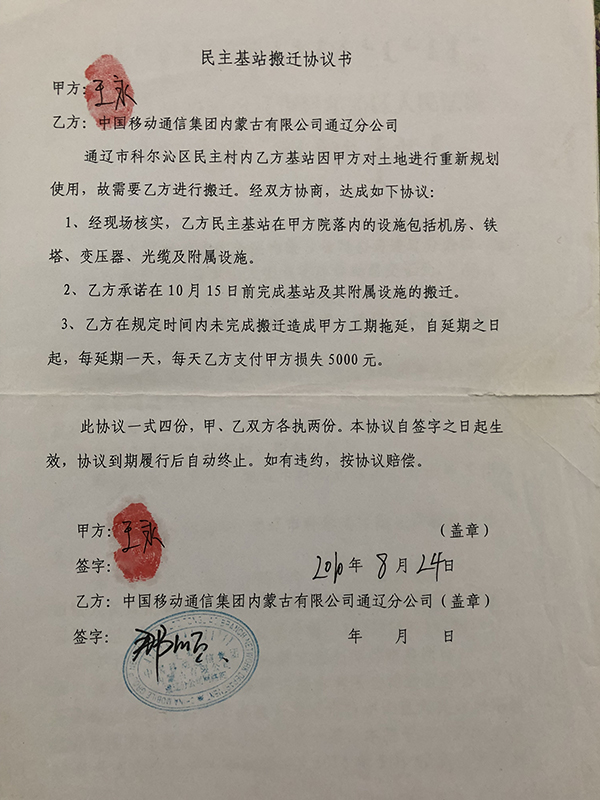 民主基站搬迁协议书
甲方：王永
乙方：中国移动通信集团内蒙古有限公司通辽分公司
通辽市科尔沁区民主村内乙方基站因甲方对土地进行重新规划
使用，故需要乙方进行搬迁。经双方协商，达成如下协议：
1、经现场核实，乙方民主基站在甲方院落内的设施包括机房、铁
塔、变压器、光缆及附属设施。
2、乙方承诺在10月15日前完成基站及其附属设施的搬迁。
3、乙方在规定时间内未完成搬迁造成甲方工期拖延，自延期之日
起，每延期一天，每天乙方支付甲方损失5000元。
此协议一式四份，甲、乙双方各执两份。本协议自签字之日起生
效，协议到期履行后自动终止。如有违约，按协议赔偿。
甲方：王永 （盖章）
签字： 2010年8月24日
乙方：中国移动通信集团内蒙古有限公司通辽分公司（盖章）
签字： 年 月 日